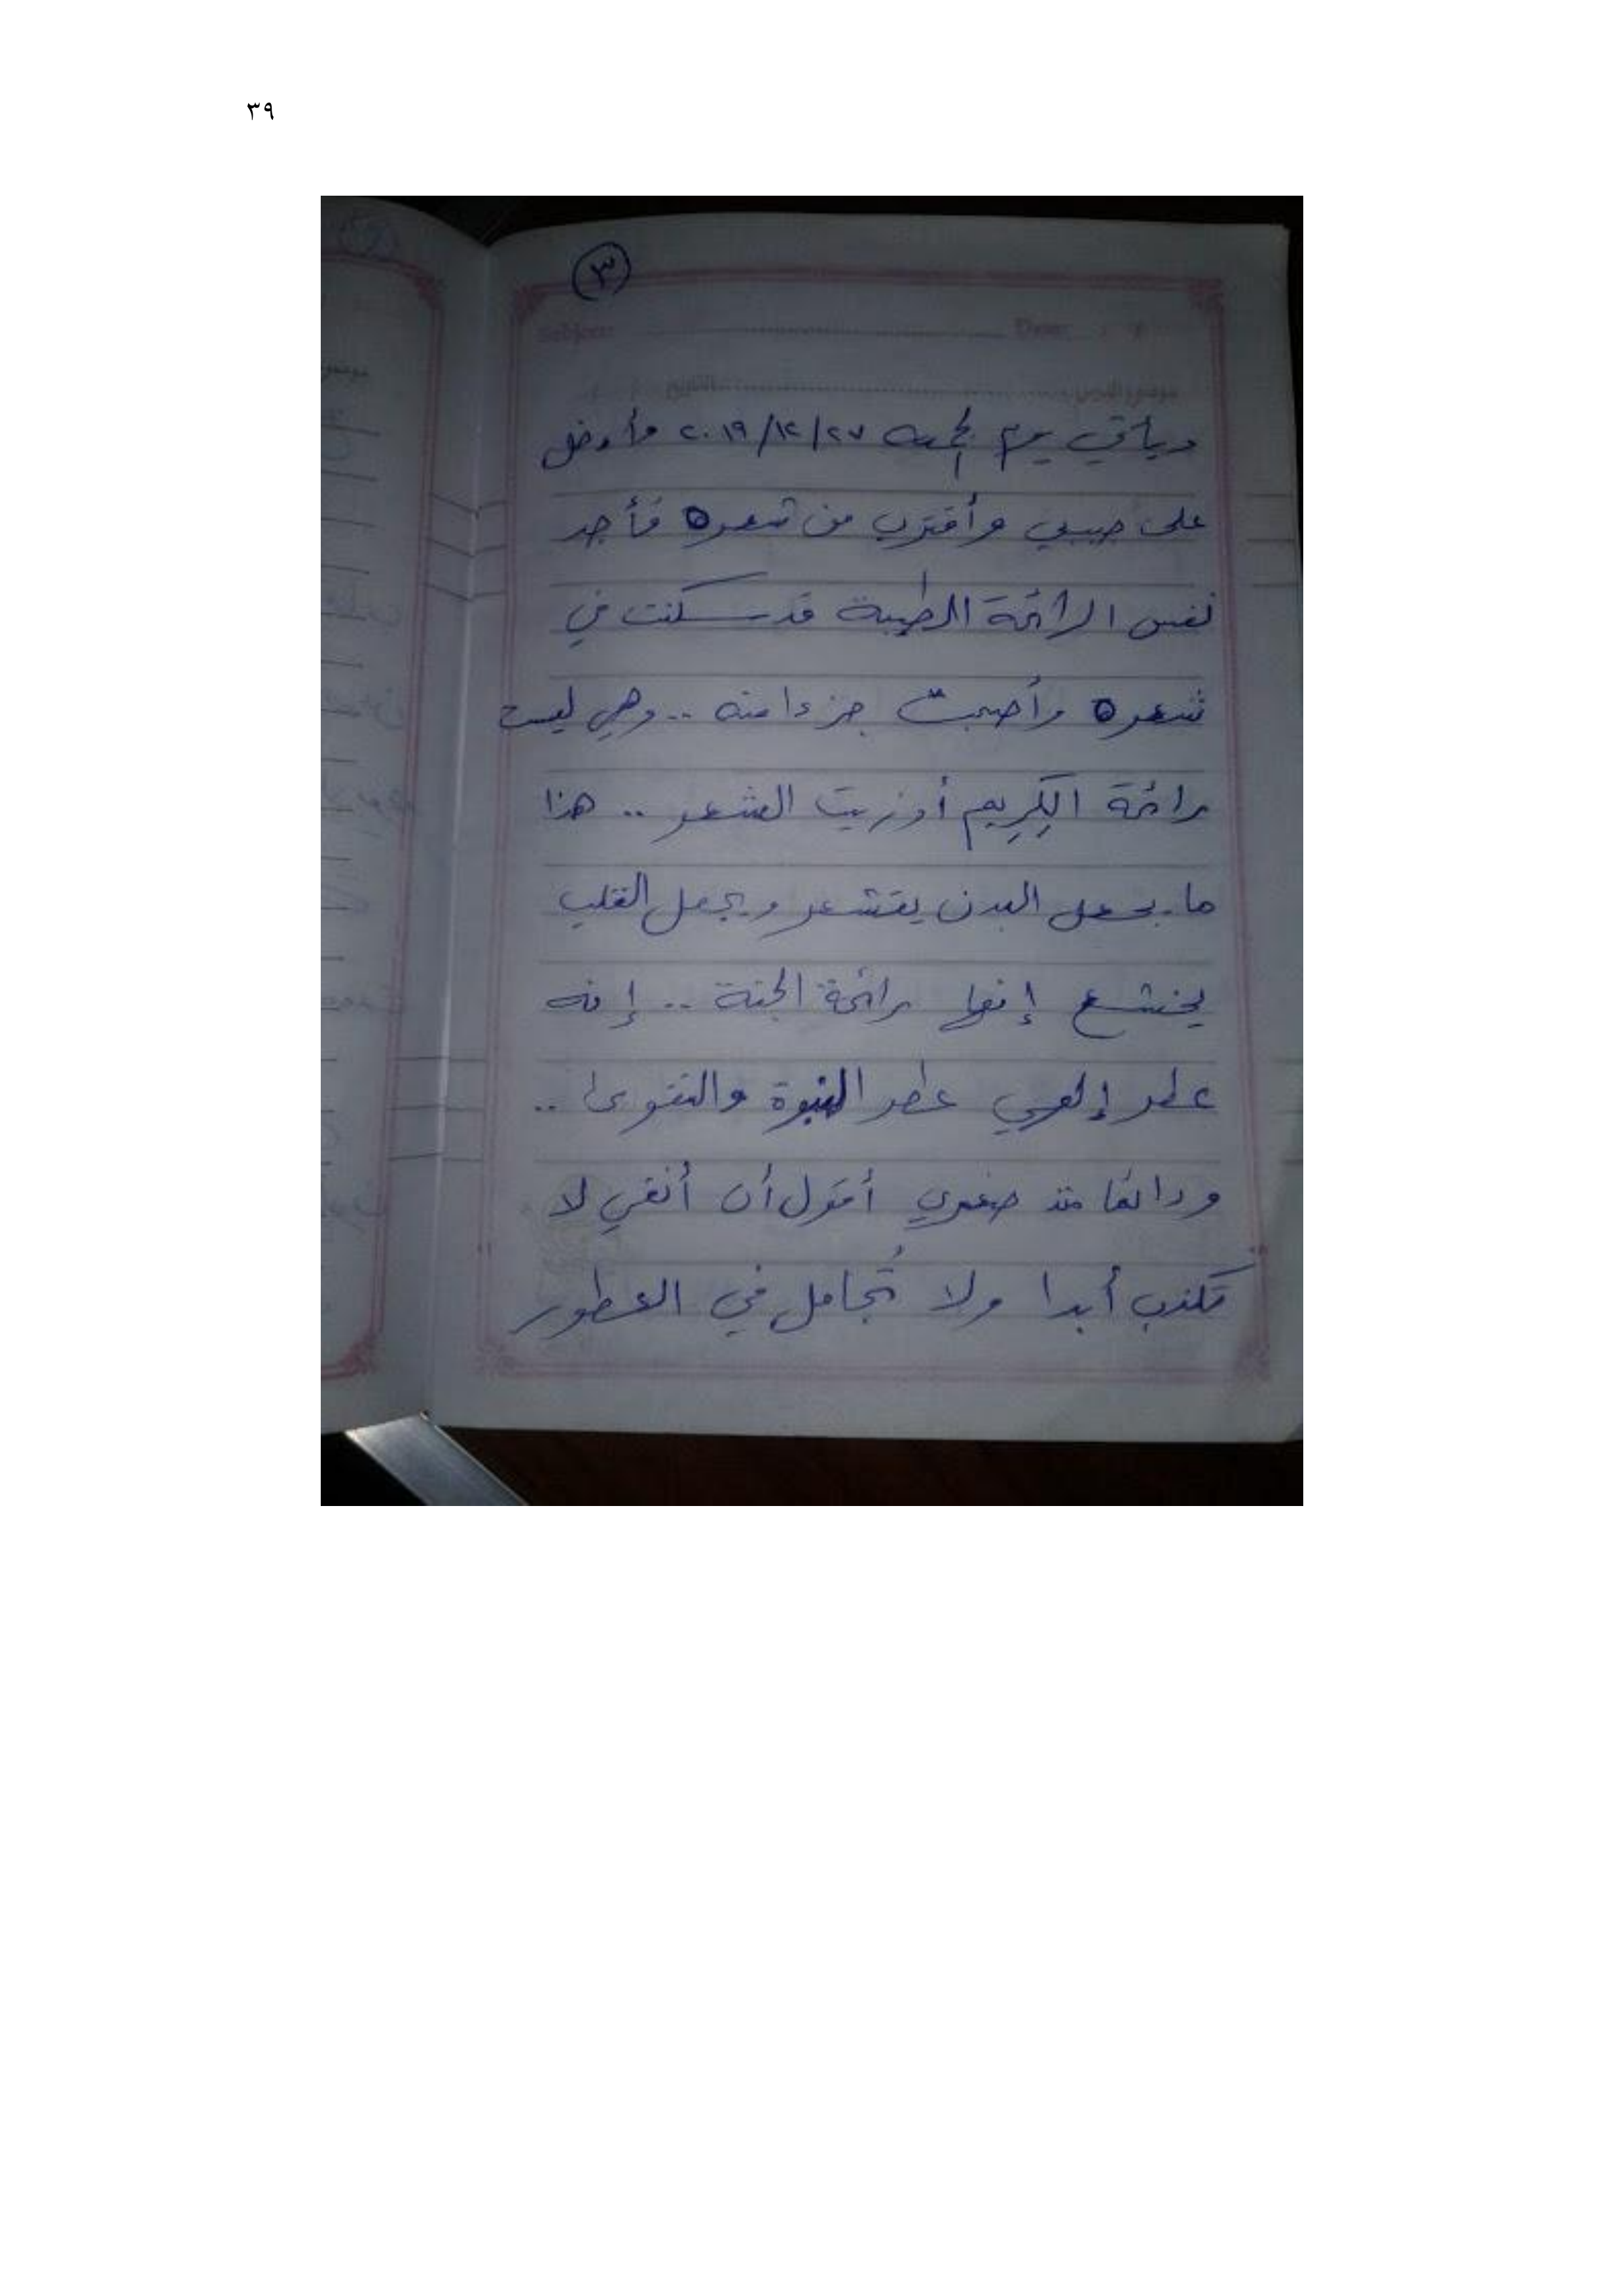 ٣٩
٣
Subject: Date:
التاريخ
ويأتي يوم الجمعه ٢٧/١٢/٢٠١٩ وأدخل
على حبيبي وأقترب من شعره فأجد
نفس الرائحة الطيبة قد سكنت في
شعره وأصبحت جزءا منه .. وهي ليست
رائحة الكِرِيم أو زيت الشعر .. هذا
ما يجعل البدن يقشعر ويجعل القلب
يخشع إنها رائحة الجنة .. إنه
عطر إلهي عطر النبوة والتقوى ..
ودائما منذ صغري أقول أن أنفي لا
تكذب أبدا ولا تُجامل في العطور